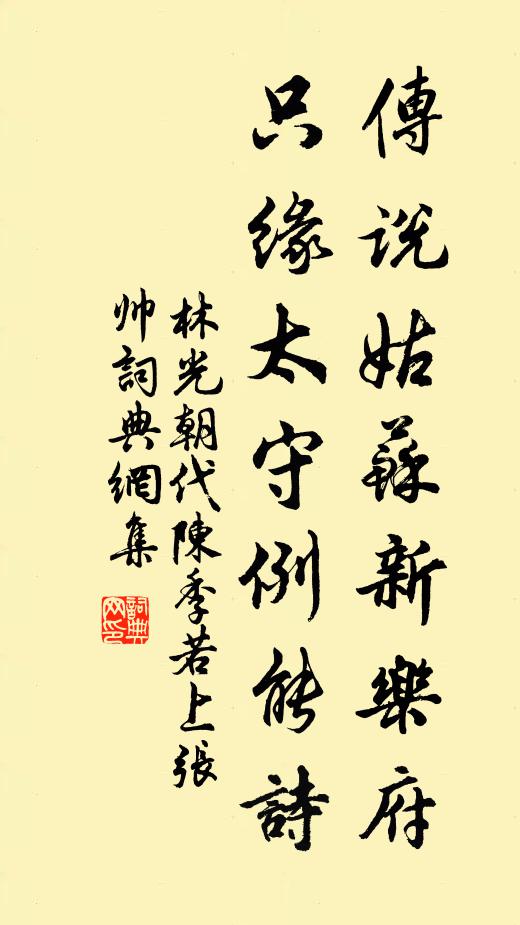 傳説姑蘇新樂府
只緣太守例能詩
林光朝代陳季若上張
帅詞典網集
詞典
网印